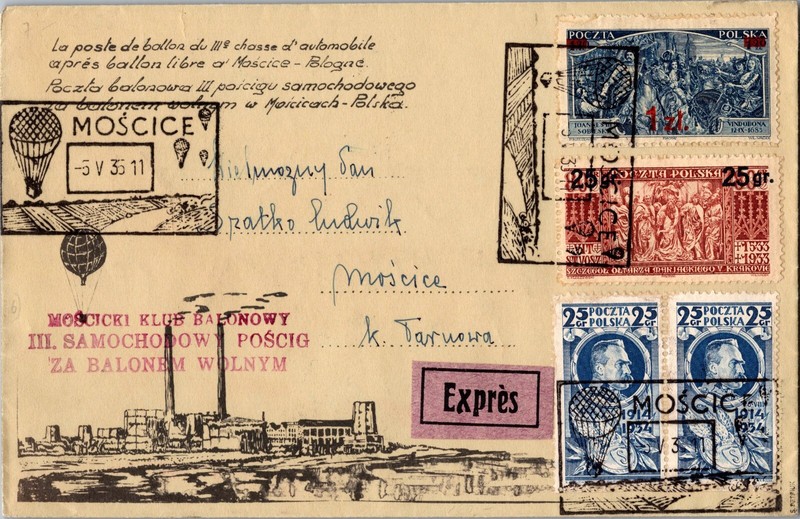 La poste de ballon du IIIᵉ chasse d'automobile
après ballon libre a' Moscice - Pologne.
Poczta balonowa III pościgu samochodowego
za balonem wolnym w Mościcach - Polska.
MOŚCICE
-5 V 35 11
Pan
Bratko Ludwik
Mościce
k. Tarnowa
MOŚCICKI KLUB BALONOWY
III. SAMOCHODOWY POŚCIG
ZA BALONEM WOLNYM
Exprès
POCZTA POLSKA
1 zł.
JOANNES
SOBIESKI
VINDOBONA
12·IX·1683
MOŚCICE
25 gr. 25 gr.
POCZTA POLSKA
1533
1933
SZCZEGÓŁ OŁTARZA MARJACKIEGO W KRAKOWIE
25 GR POCZTA POLSKA 25 GR
1914
1934
25 GR POCZTA POLSKA 25 GR
1914
1934
MOŚCICE
V 3